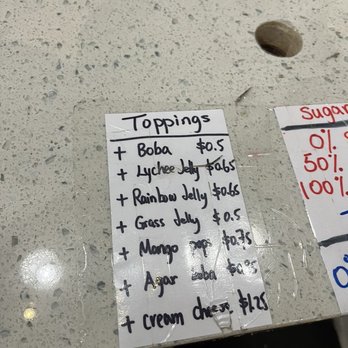 Toppings
+ Boba $0.5
+ Lychee Jelly $0.65
+ Rainbow Jelly $0.65
+ Grass Jelly $0.5
+ Mango pops $0.75
+ Agar boba
+ cream cheese $1.25
Sugar
0%
50%
100%